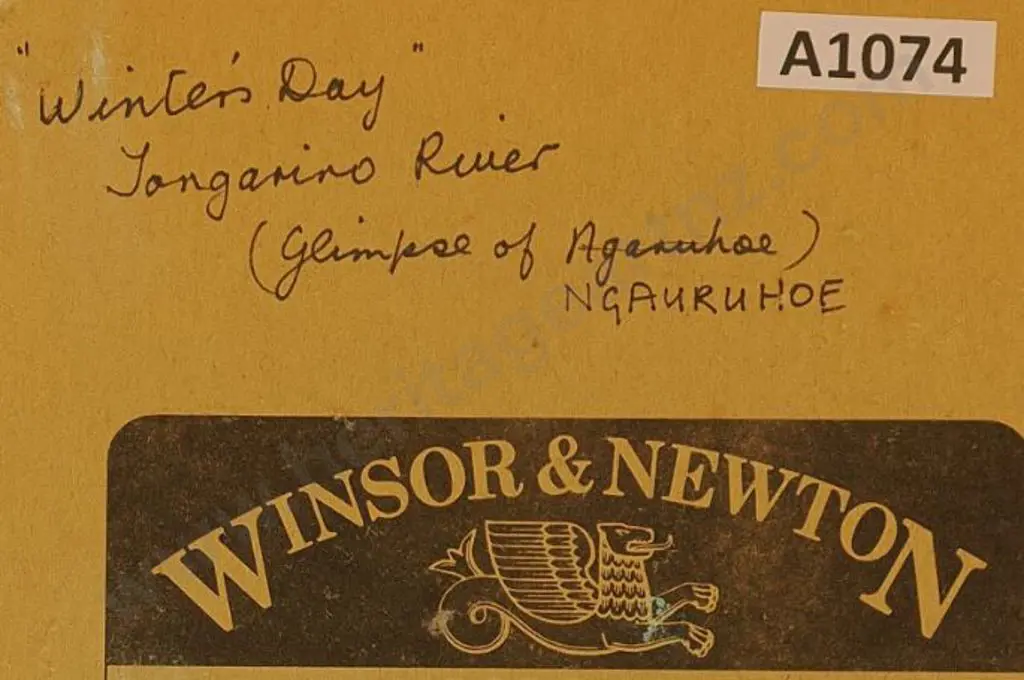 "Winter's Day"
A1074
Tongariro River
(Glimpse of Agaruhoe)
NGAURUHOE
WINSOR & NEWTON